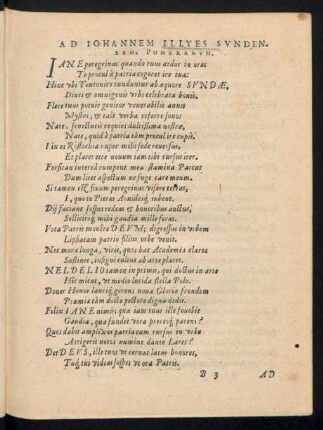 AD IOHANNEM ILLYES SVNDEN-
SEM, POMERANVM.
IANE peregrinas quando tuus ardor in oras
Te procul à patria cogeret ire tua:
Hinc vbi Teutonico tunduntur ab aequore SVNDAE,
Diues & omnigenis vrbs celebrata bonis.
Flere tuus potuit genitor venerabilis annis
Mystes, & tali verba referre sono:
Nate, senectutis requies dulcissima nostrae,
Nate, quid à patria tàm procul ire cupis.
I in ex Rostochia rupor mihi sede reuersus,
Et placet ecce nouum tam tibi rursus iter.
Forsitan interea rumpent mea stamina Parcae
Dum licet aspectum ne fuge care meum.
Si tamen est fixum peregrinas visere terras,
I, quote Pietas Aonidesq́; iubent.
Dij faciant sospes redeas & honoribus auctus,
Sollicitoq́; mihi gaudia mille feras.
Vota Patris mouêre DEVM; digressus in vrbem
Lipsiacam patrio filius orbe venit.
Nec mora longa, viris, quos hac Academia claros
Sustinet, insigni cultus ab arte places.
NELDELIO tamen in primis, qui doctus in arte
Hîc micat, vt medio lucida stella Polo.
Donec Honor lauruq́; gerens noua Gloria frondem
Praemia tàm docto pectore digna dedit.
Felix IANE nimis, quae iam tuus ille fouebit
Gaudia, qua fundet vota precesq́; parens?
Quos dabit amplexus patriam tum rursus in vrbem
Attigeris notos numine dante Lares?
Det DEVS, ille tuos vt cernat laetus honores,
Tuq́; tui videas sospes vt ora Patris.
B 3 AD